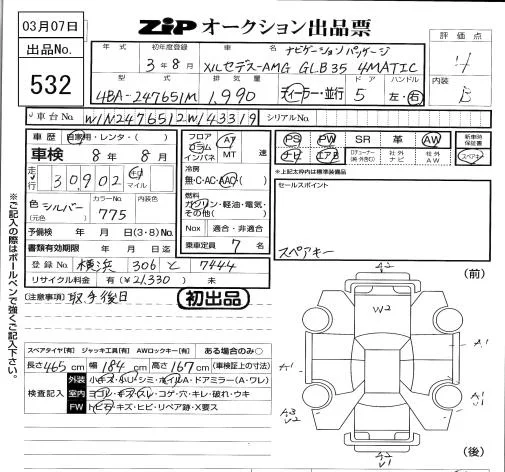 03月07日
ZIP オークション出品票
出品No.
532
年式
初年度登録
3年8月
車名
ナビゲーションパッケージ
メルセデス-AMG GLB35 4MATIC
評価点
4
型式
4BA-247651M
排気量
1,990
ディーラー・並行
ドア
5
ハンドル
左・右
内装
B
車台No.
W1N2476512W143319
シリアルNo.
車歴
自家用・レンタ・( )
車検
8年8月
走行
30,902
キロ
マイル
色
シルバー
(元色)
カラーNo.
775
内装色
予備検 年 月 日(3・8)No.
書類有効期限 年 月 日迄
登録No. 横浜 306 と 7444
リサイクル料金 有(¥21,330) 未
フロア
コラム
インパネ
AT
MT
速
冷房
無・C・AC・AAC
燃料
ガソリン・軽油・電気・
その他( )
Nox 適合・非適合
乗車定員 7 名
PS PW SR 革 AW
ナビ エアB
社外
ナビ
社外
AW
新車時
保証書
スペアキー
※上記太枠内は標準装備品
セールスポイント
スペアキー
注意事項] 取手後日
初出品
※ご記入の際はボールペンで強くご記入下さい。
スペアタイヤ[有] ジャッキ工具[有] AWロックキー[有] ある場合のみ○
長さ465cm 幅184cm 高さ167cm (車検証上の寸法)
検査記入
外装 小キズ・小U・シミ・ホイルA・ドアミラー(A・ワレ)
室内 ヨゴレ・キズ・スレ・コゲ・穴・キレ・破れ・ウキ
FW トビ石・キズ・ヒビ・リペア跡・X要ス
(前)
A2
W2
A1
A1
A3
V2
A1
A2
V1
(後)